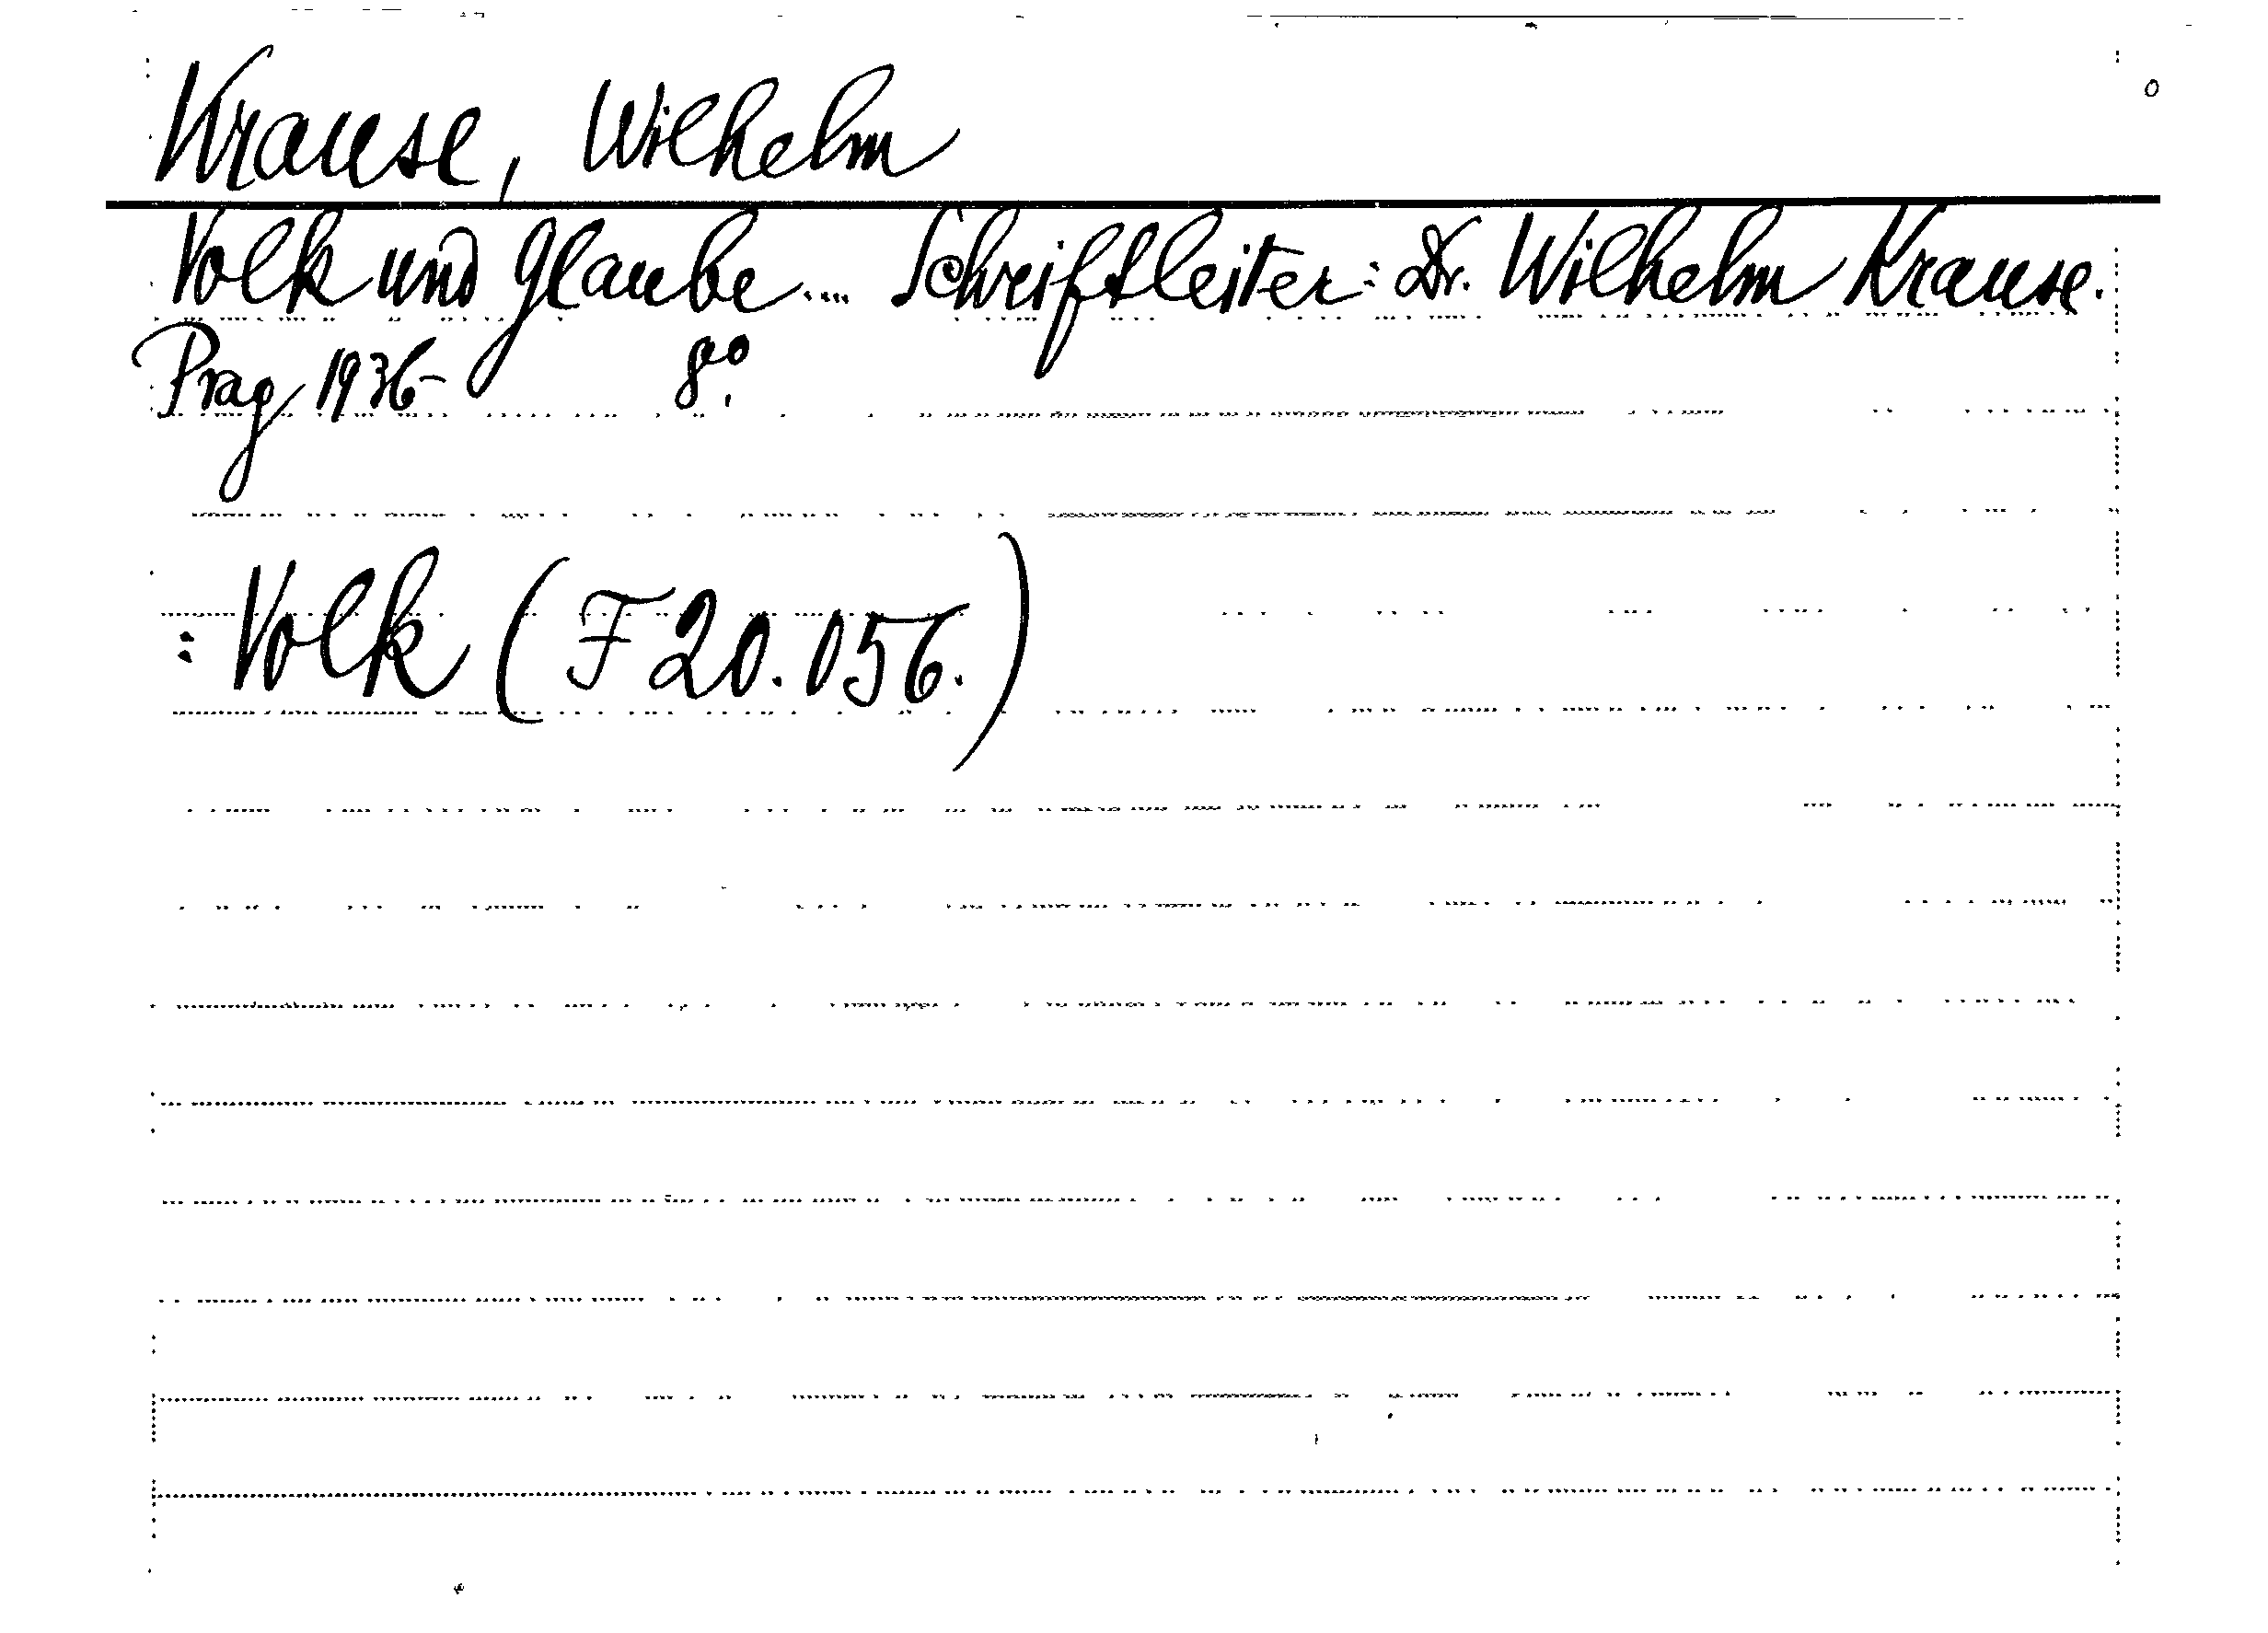 Krause, Wilhelm
Volk und Glaube.... Schriftleiter: Dr. Wilhelm Krause.
Prag 1936- 8°.
: Volk (F 20.056.)